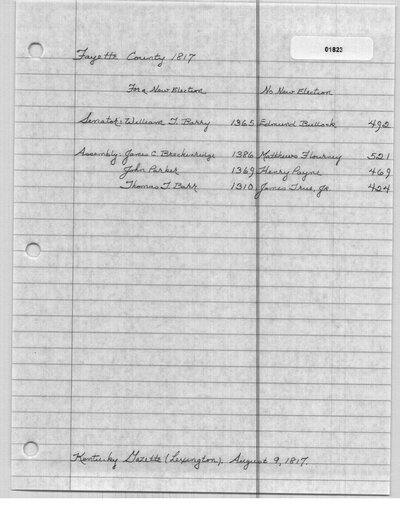 01823
Fayette County 1817
For a New Election No New Election
Senator: William T. Barry 1365 Edmund Bullock 492
Assembly: James C. Breckenridge 1386 Matthews Flourney 521
John Parker 1369 Henry Payne 469
Thomas T. Barr 1310 James True, Jr. 424
Kentucky Gazette (Lexington). August 9, 1817.